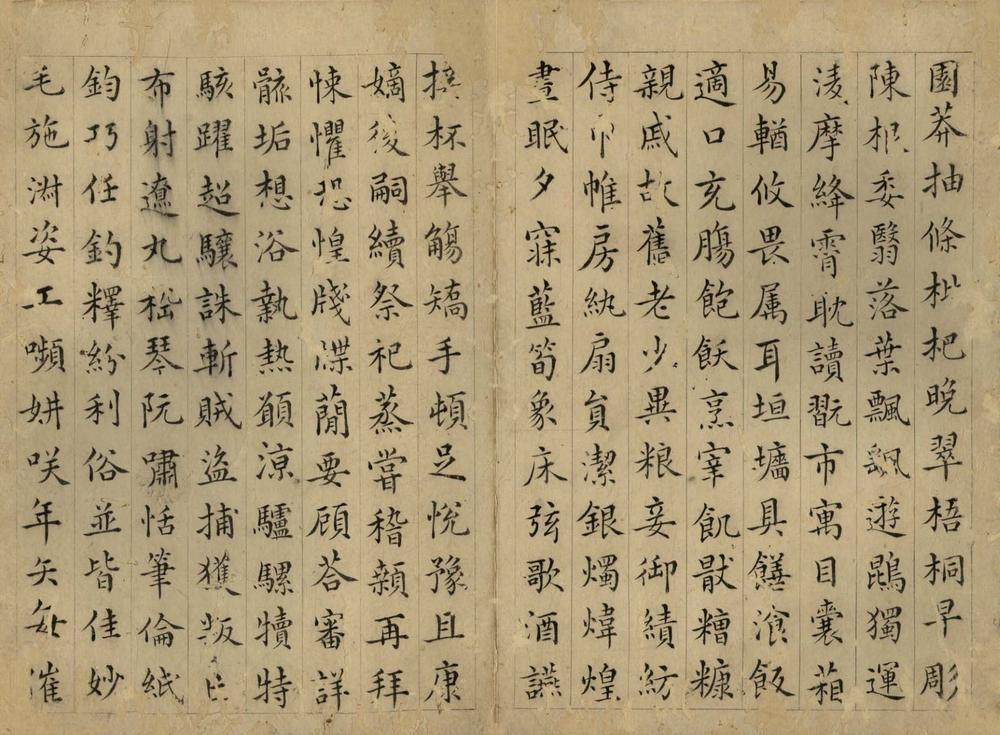 園莽抽條枇杷晚翠梧桐早彫
陳根委翳落葉飄飖遊鵾獨運
淩摩絳霄耽讀翫市寓目囊葙
易輶攸畏属耳垣墻具饍飡飯
適口充膓飽飫烹宰飢猒糟糠
親戚故舊老少異粮妾御績紡
侍巾帷房紈扇負潔銀燭煒煌
晝眠夕寐藍筍象床弦歌酒讌
接杯舉觴矯手頓足悅豫且康
嫡後嗣續祭祀蒸甞稽顙再拜
悚懼恐惶牋牒蕳要顧荅審詳
骸垢想浴執熱願涼驢騾犢特
駭躍超驤誅斬賊盜捕獲叛亡
布射遼丸嵇琴阮嘯恬筆倫紙
鈞巧任釣釋紛利俗並皆佳妙
毛施淑姿工嚬妍咲年矢每催